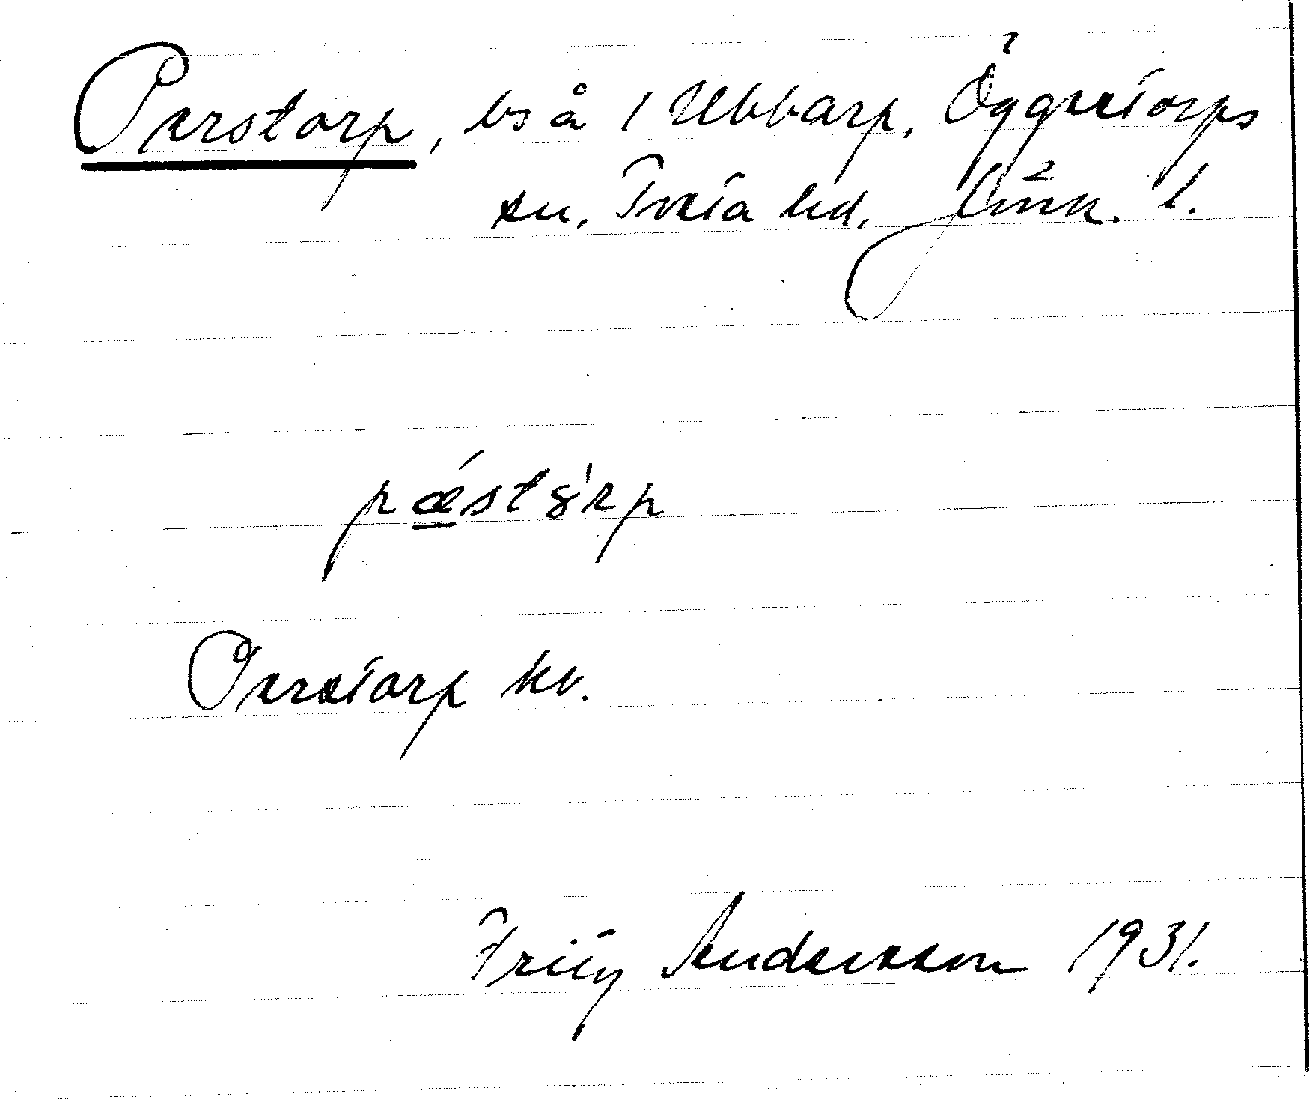 Perstorp, bs å 1 Ubbarp, Öggestorps
sn, Tveta hd, Jönk. l.
pǽstȣ̀rp
Perstorp kv.
Fritz Andersson 1931.